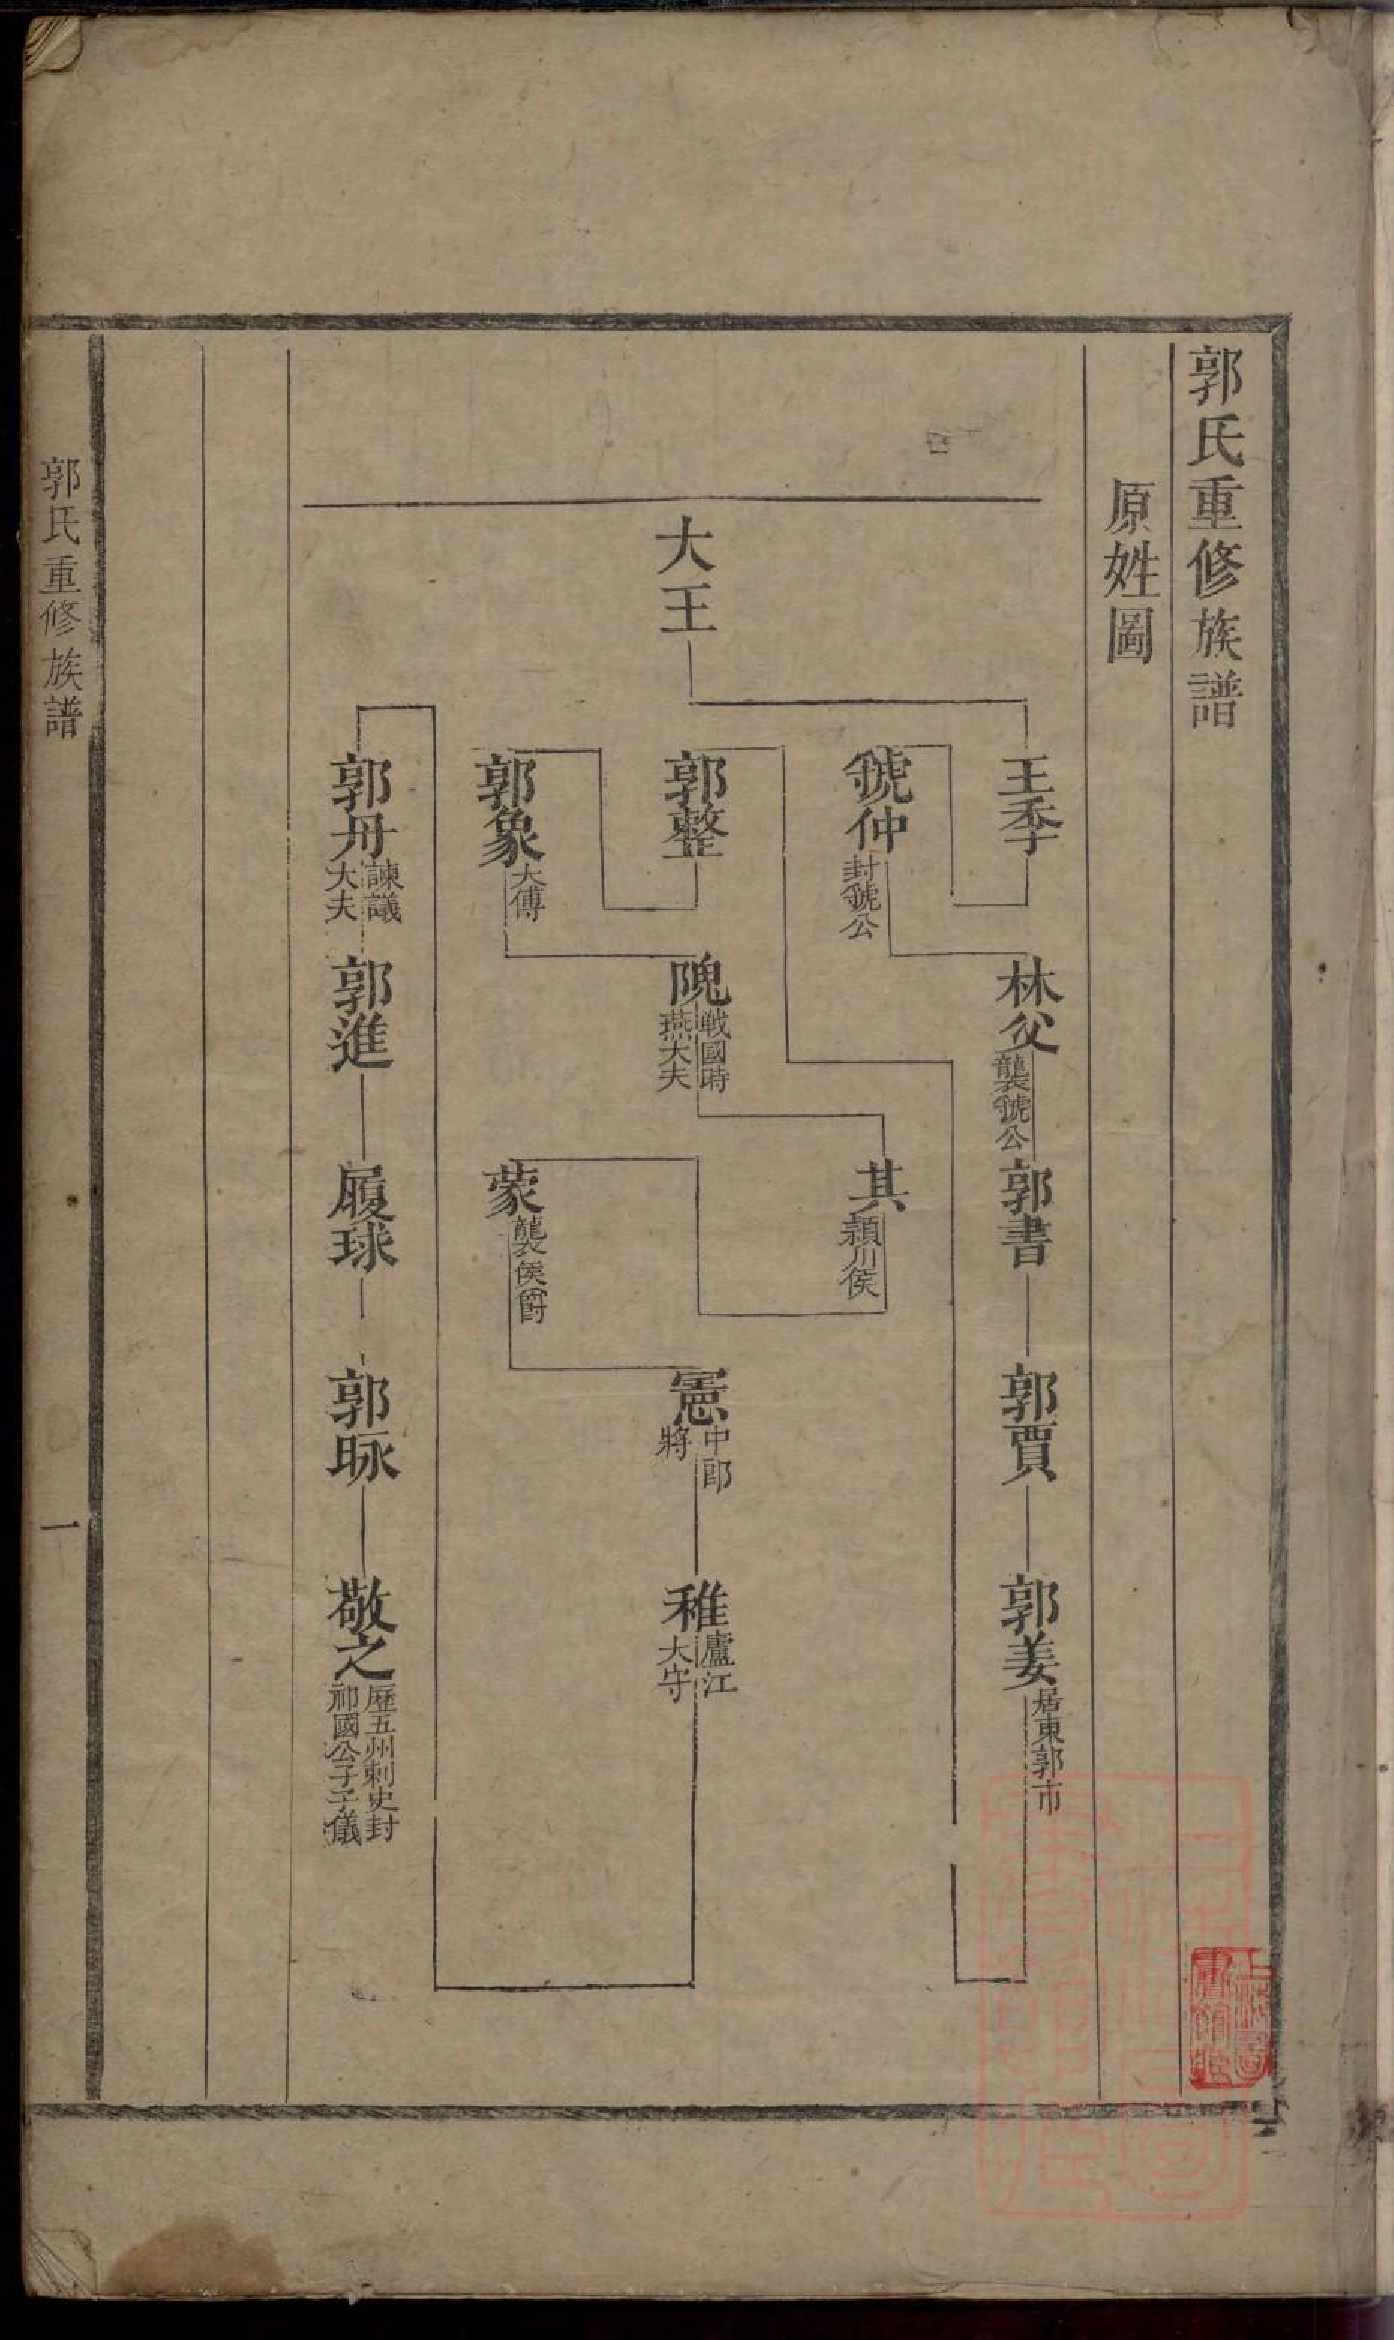 郭氏重修族譜
原姓圖
大王
王季
虢仲 封虢公
林父 襲虢公
郭書
郭賈
郭姜 居東郭市
郭整
郭象 大傅
隗 戦國時
燕大夫
其 潁川侯
蒙 襲侯爵
憲 中郎
將
稚 廬江
大守
郭丹 諫議
大夫
郭進
履球
郭脉
敬之 歷五州刺史封
祁國公子子儀
郭氏重修族譜
一
上海圖書館藏